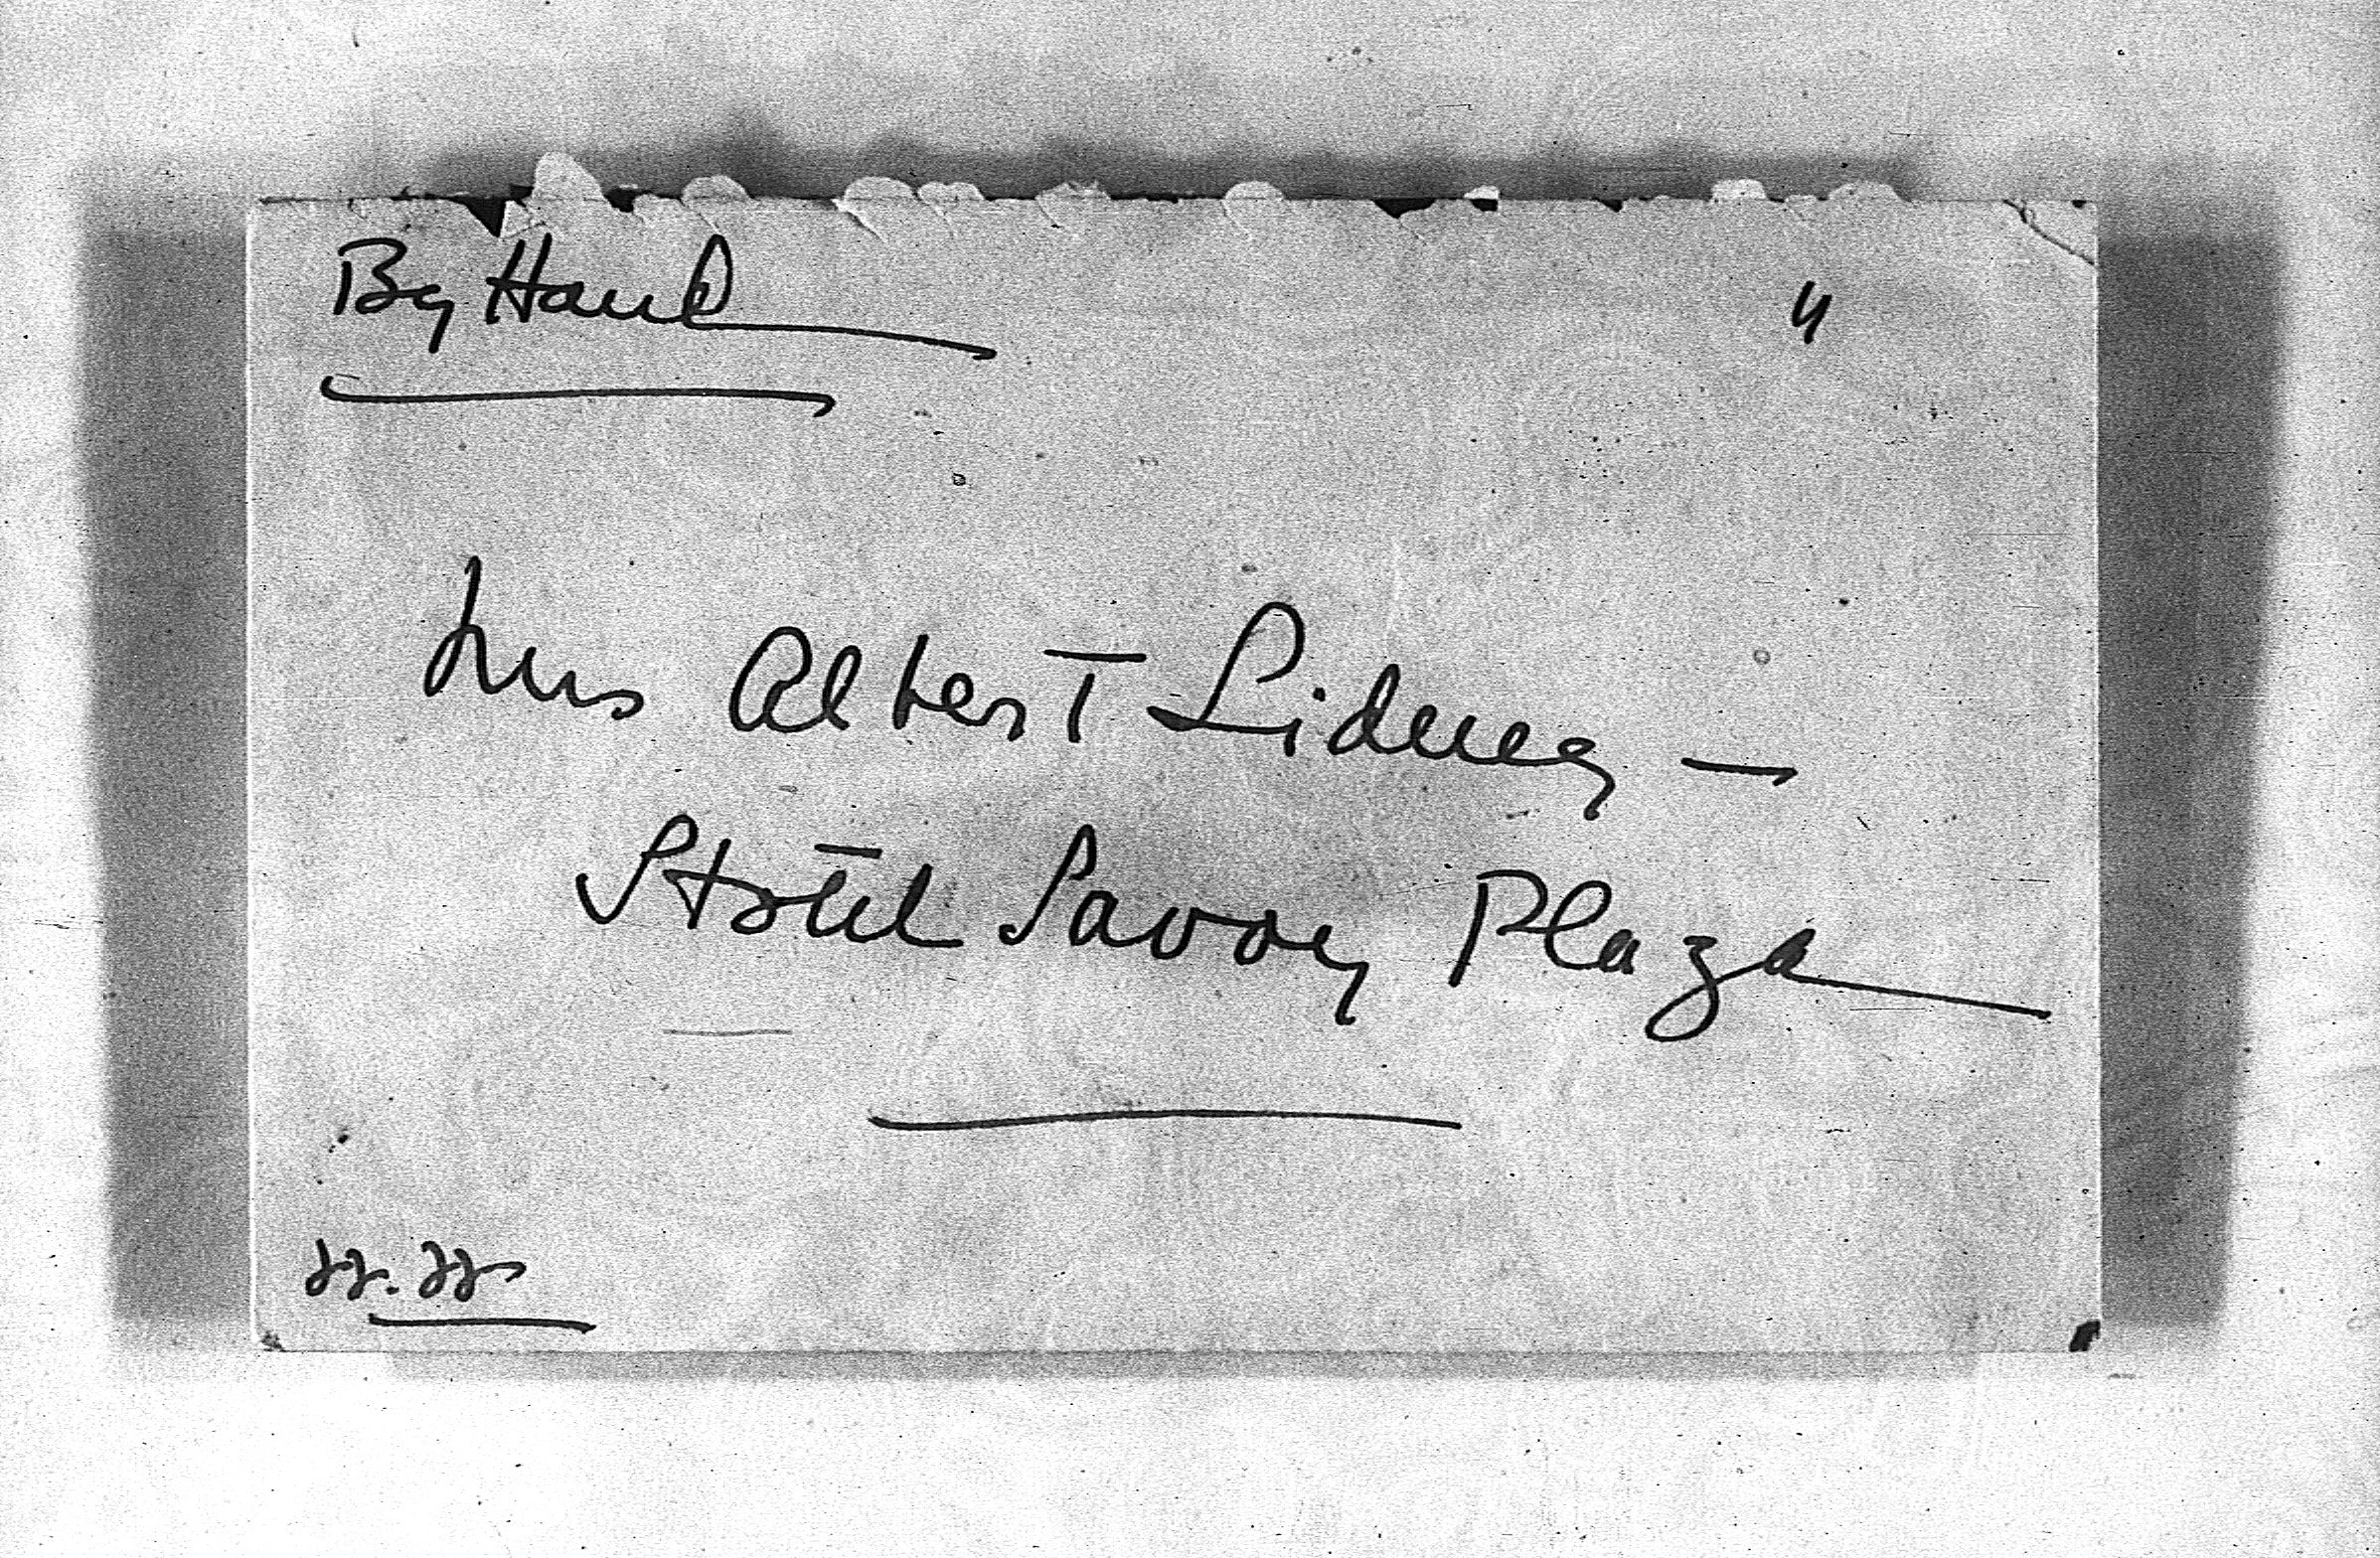 By Hand
4
Mrs Albert Sidney —
Hotel Savoy Plaza